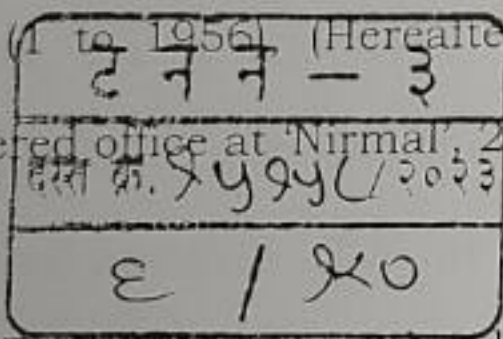 (1 to 1956) (Hereafte
ट न न — ३
ered office at 'Nirmal', 2
दस्त क्र. ४५१५८/२०२३
६ / ४०